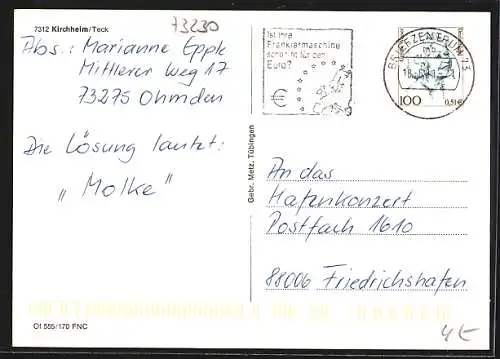 7312 Kirchheim/Teck
73230
Abs.: Marianne Epple
Mittlerer Weg 17
73275 Ohmden
Die Lösung lautet:
„Molke"
Of 555/170 FNC
Gebr. Metz, Tübingen
Ist Ihre
Frankiermaschine
schon fit für den
Euro?
€
BRIEFZENTRUM 73
mb
100
0,51€
An das
Hafenkonzert
Postfach 1610
88006 Friedrichshafen
4€